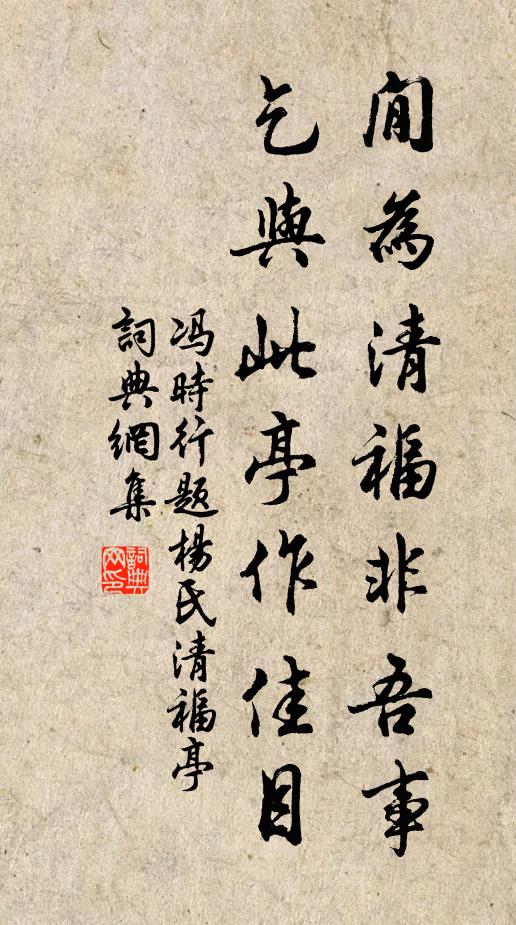 閒為清福非吾事
乞與此亭作佳目
冯時行題楊氏清福亭
詞典網集
詞典网印